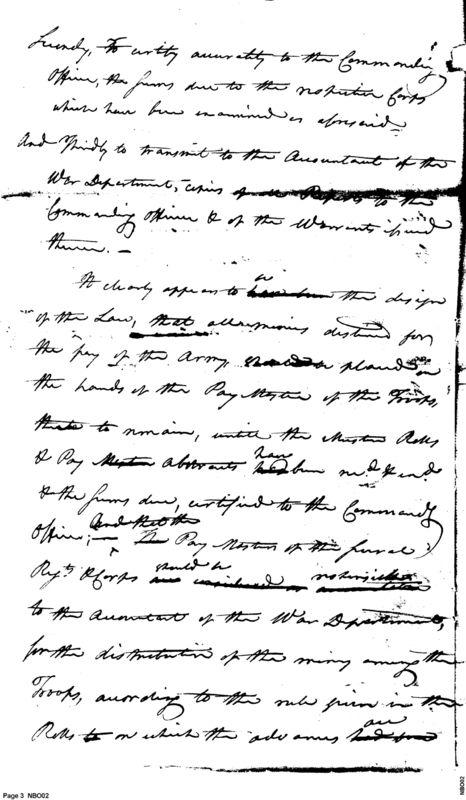 Secondly, To certify accurately to the Commanding
Officer, the sums due to the respective Corps
which have been examined as aforesaid
And Thirdly to transmit to the Accountant of the
War Department, copies of all Reports to the
Commanding Officer & of the Warrants issued
thereon. —
It clearly appears to be the design
of the Law, that all monies destined for
the pay of the Army should be placed in
the hands of the Pay Master of the Troops,
there to remain, until the Muster Rolls
& Pay Abstracts have been recd & exd
& the sums due, certified to the Commandg
Officer; — And that the Pay Masters of the several
Regts & Corps should be
to the Accountant of the War Department,
for the distribution of the money among the
Troops, according to the rule given in the
Rolls on which the advances are
Page 3 NBO02
NBO02